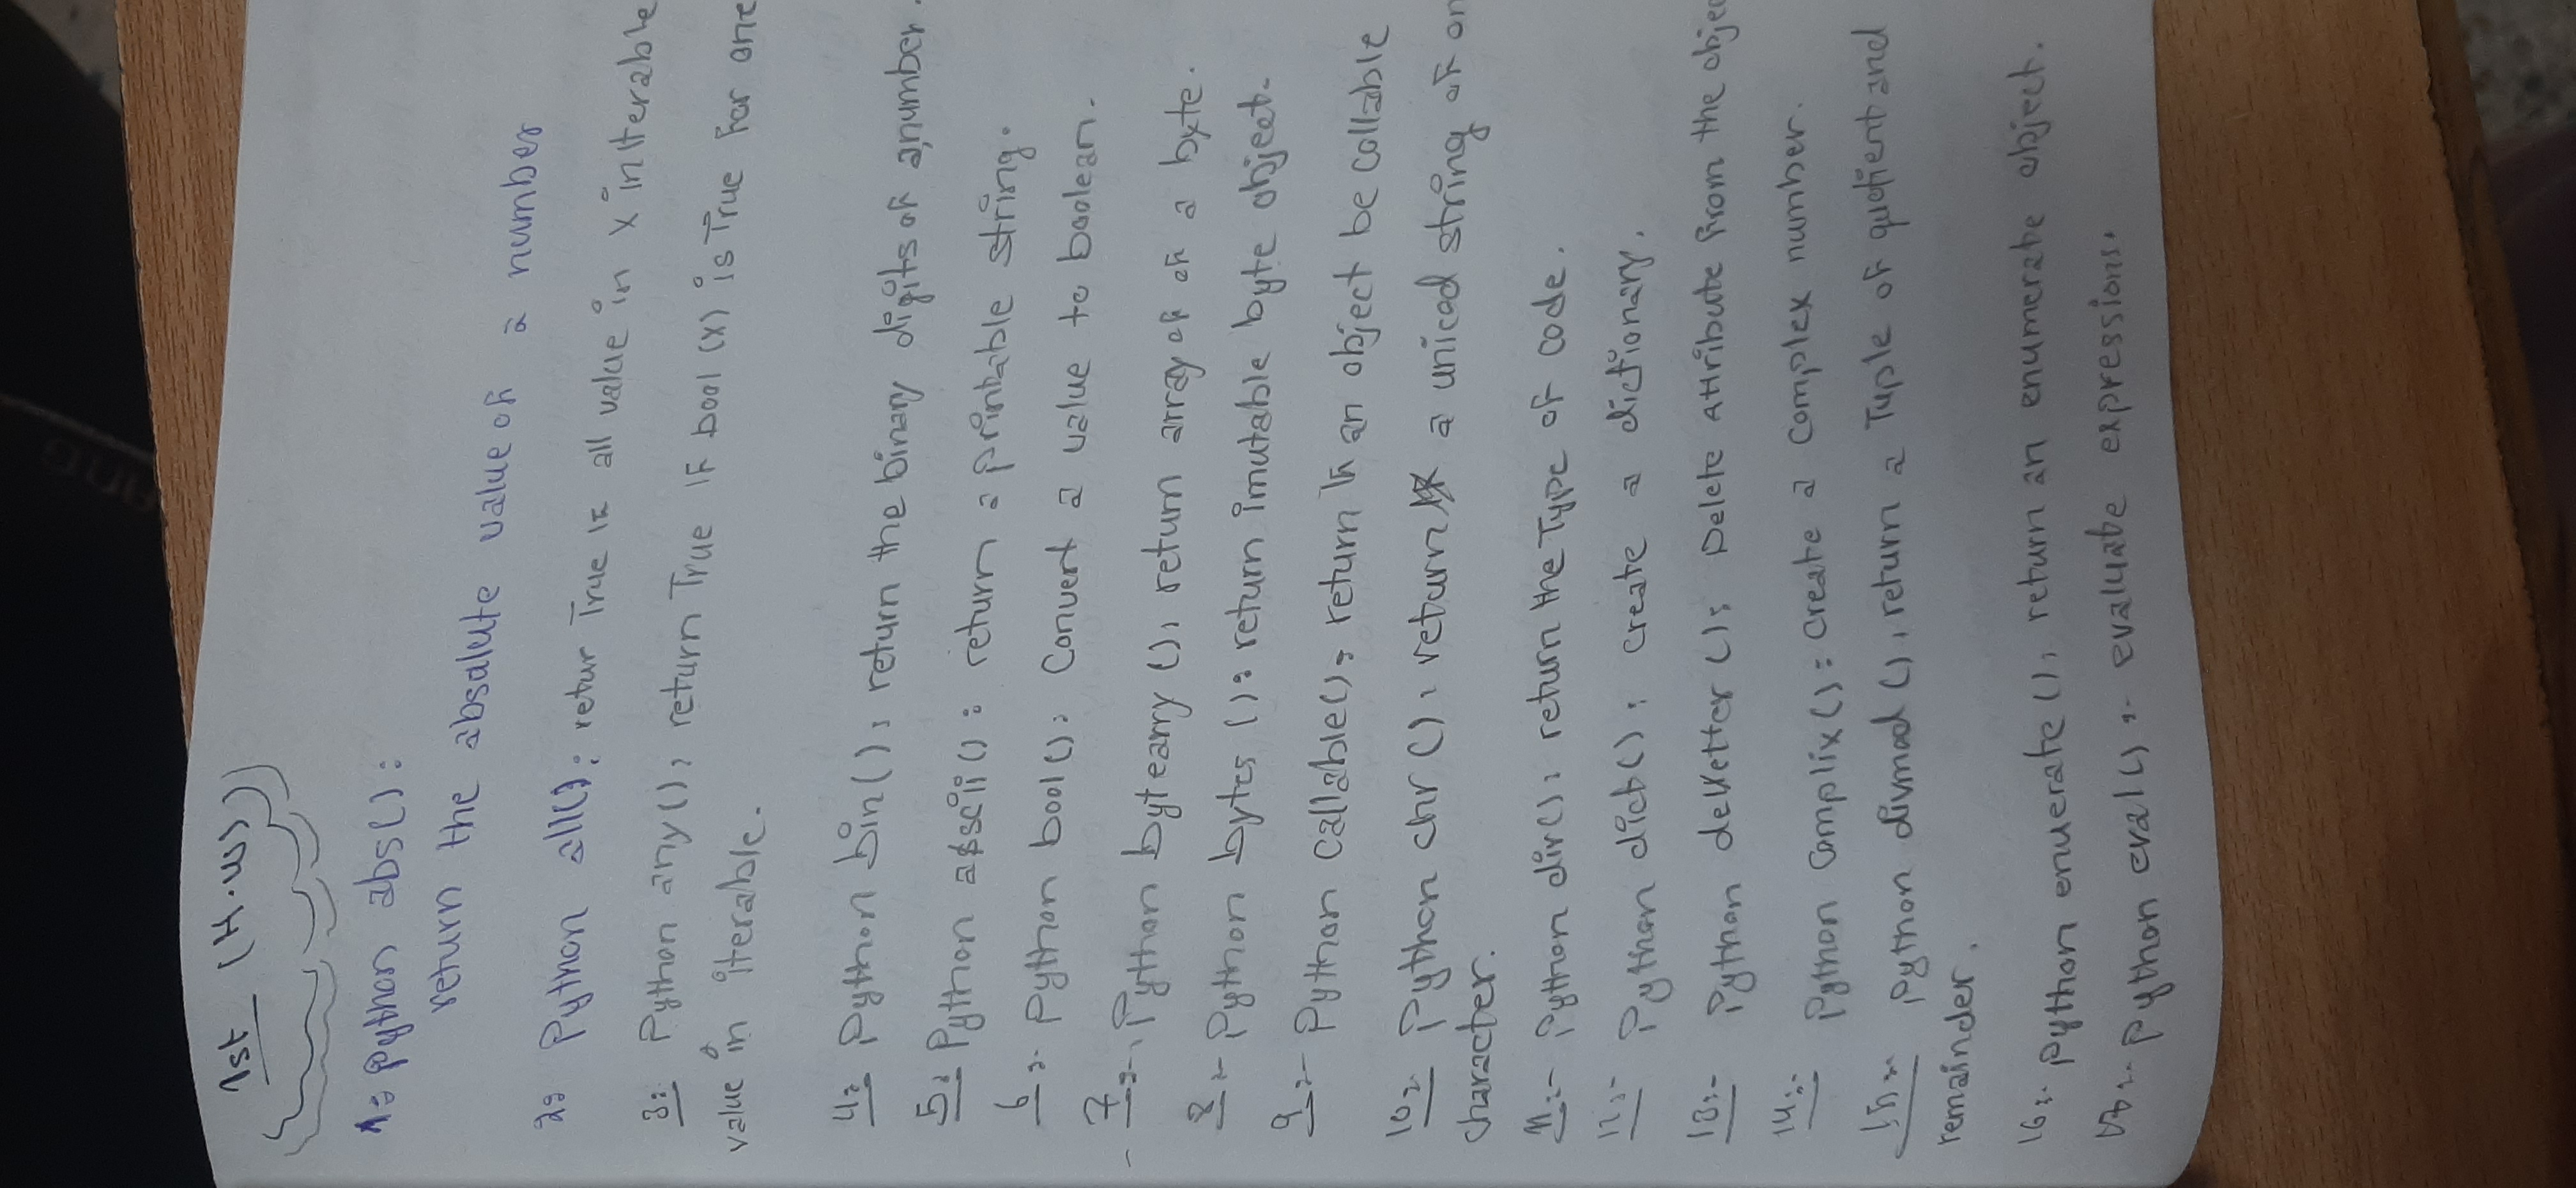 1st (H.W)
1: Python abs():
return the absalute value of a number
2: Python all(): retur True if all value in x in iterable
3: Python any(): return True if bool (x) is True for one
value in iterable.
4: Python bin(): return the binary digits of a number.
5: Python ascii(): return a printable string.
6:- Python bool(): Convert a value to boolean.
7:- Python bytearry (): return array of of a byte.
8:- Python bytes (): return imutable byte object.
9:- Python callable(): return if an object be collable
10:- Python chr (): return a unicod string of on
character.
11:- Python dir(): return the Type of code.
12:- Python dict(): create a dictionary.
13:- Python (): Delete Attribute from the objec
14:- Python Complix(): Create a complex number.
15:- Python divmod (): return a Tuple of quotient and
remainder.
16:- Python enuerate (): return an enumerate object.
17:- Python eval() :- evaluate expressions.